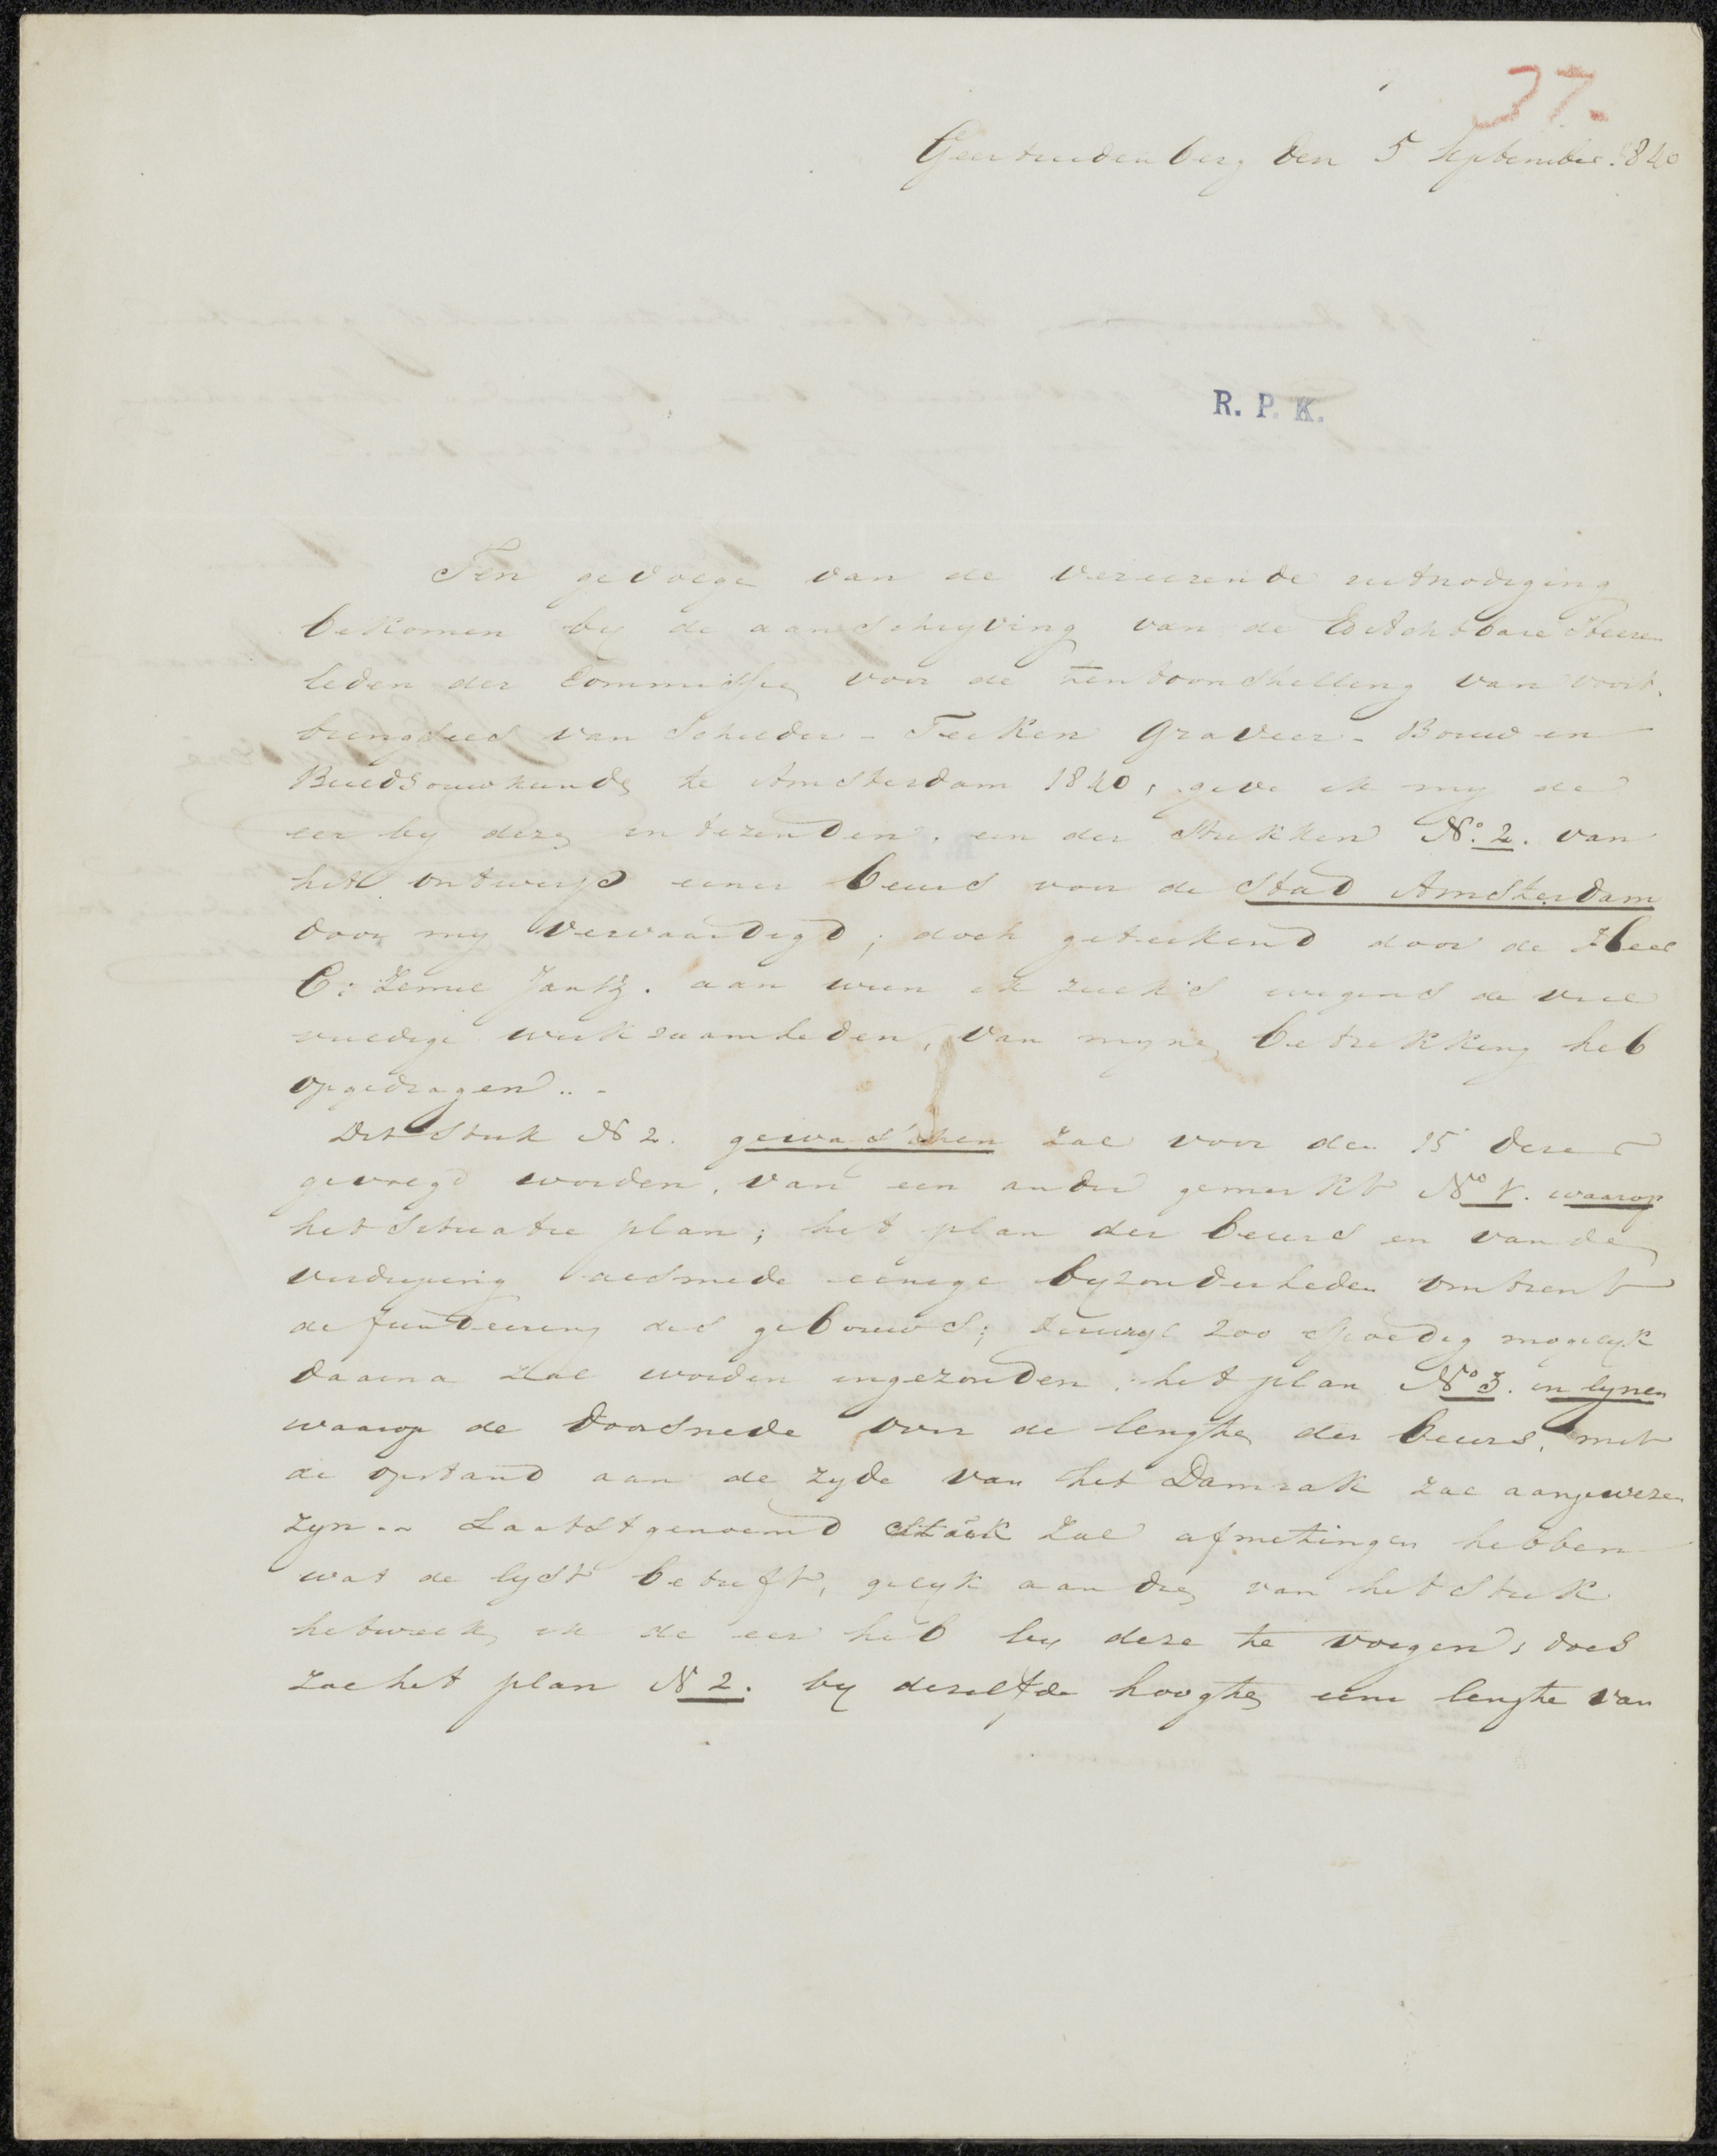 37.
Geertruidenberg den 5 September 1840
R. P. K.
Ten gevolge van de vereerende uitnodiging
bekomen by de aanschryving van de EdAchtbare Heeren
leden der Commissie voor de tentoonstelling van voort-
brengsels van Schilder- Teeken Graveer- Bouw en
Beeldhouwkunde te Amsterdam 1840, geve ik my de
eer by deze in tezenden. een der stukken N.o 2. van
het ontwerp eener beurs voor de stad Amsterdam
door my vervaardigd; doch geteekend door de Heer
C: Jantz. aan wien ik zulks wegens de veel
vuldige werkzaamheden, van myne betrekking heb
opgedragen..-
Dit Stuk N 2. gewasschen zal voor den 15 dezer
gevolgd worden, van een ander gemerkt No 1. waarop
het Situatie plan; het plan der beurs en van de
verdieping alsmede eenige byzonderheden omtrent
de fundeering des gebouws; terwyl zoo spoedig mogelyk
daarna zal worden ingezonden: het plan No 3. in lynen
waarop de doorsnede over de lengthe der beurs, met
de opstand aan de zyde van het Damrak zal aangewezen
zyn.- Laatstgenoemd stuk zal afmetingen hebben
wat de lyst betreft, gelyk aan die van het Stuk
hetwelk ik de eer heb by deze te voegen, doch
zal het plan N 2. by dezelfde hoogthe eene lengthe van